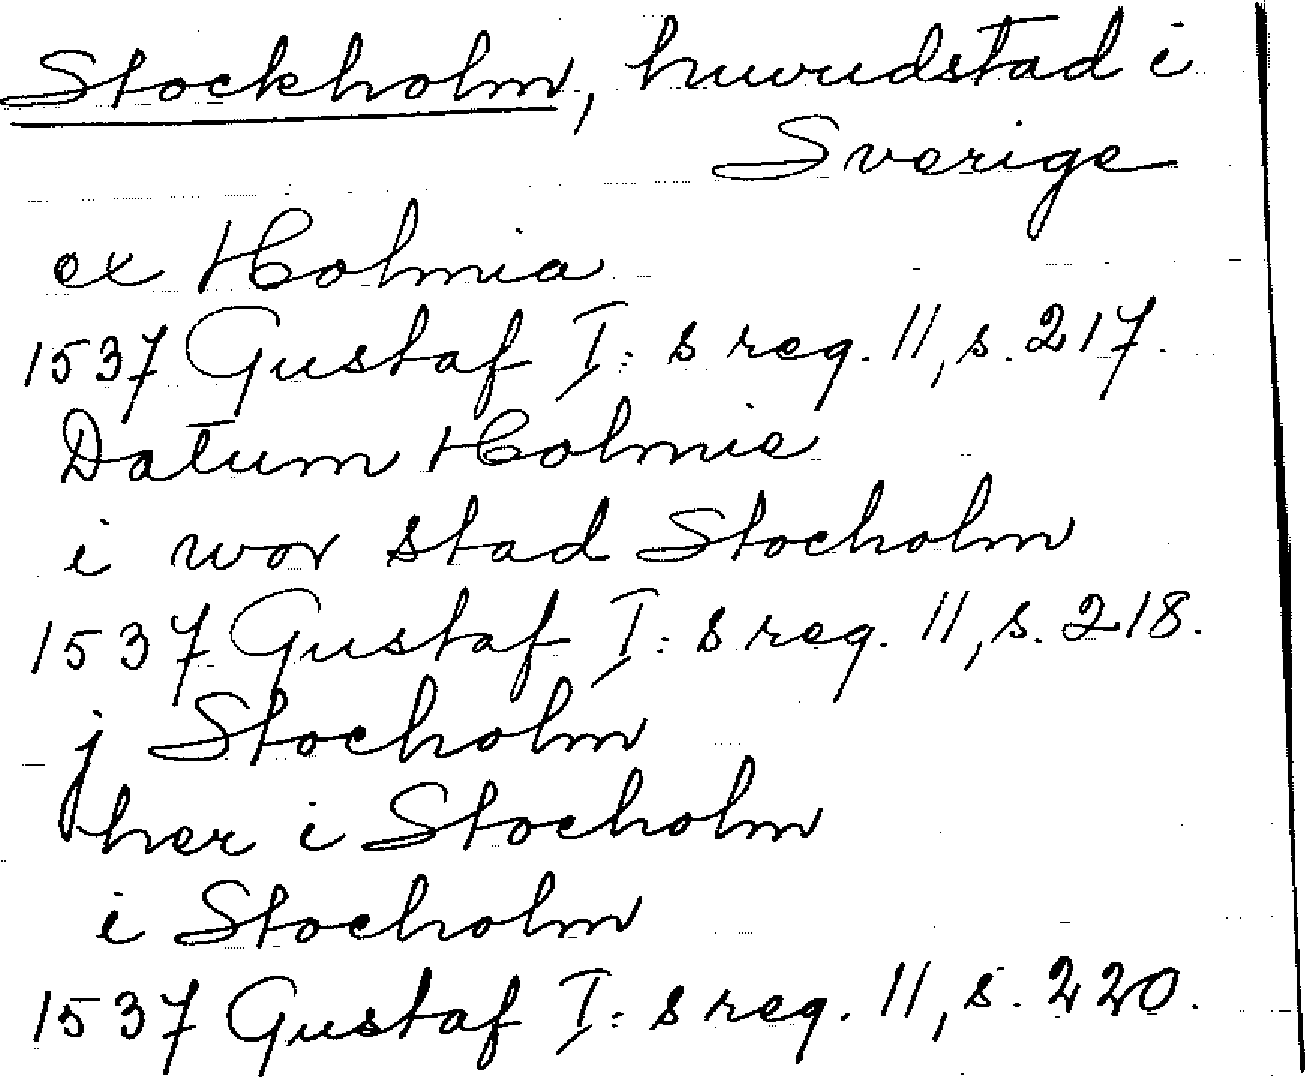 Stockholm, huvudstad i
Sverige
ex Holmia
1537 Gustaf I:s reg. 11, s. 217.
Datum Holmie
i wor stad Stocholm
1537 Gustaf I:s reg. 11, s. 218.
j Stocholm
her i Stocholm
i Stocholm
1537 Gustaf I:s reg. 11, s. 220.